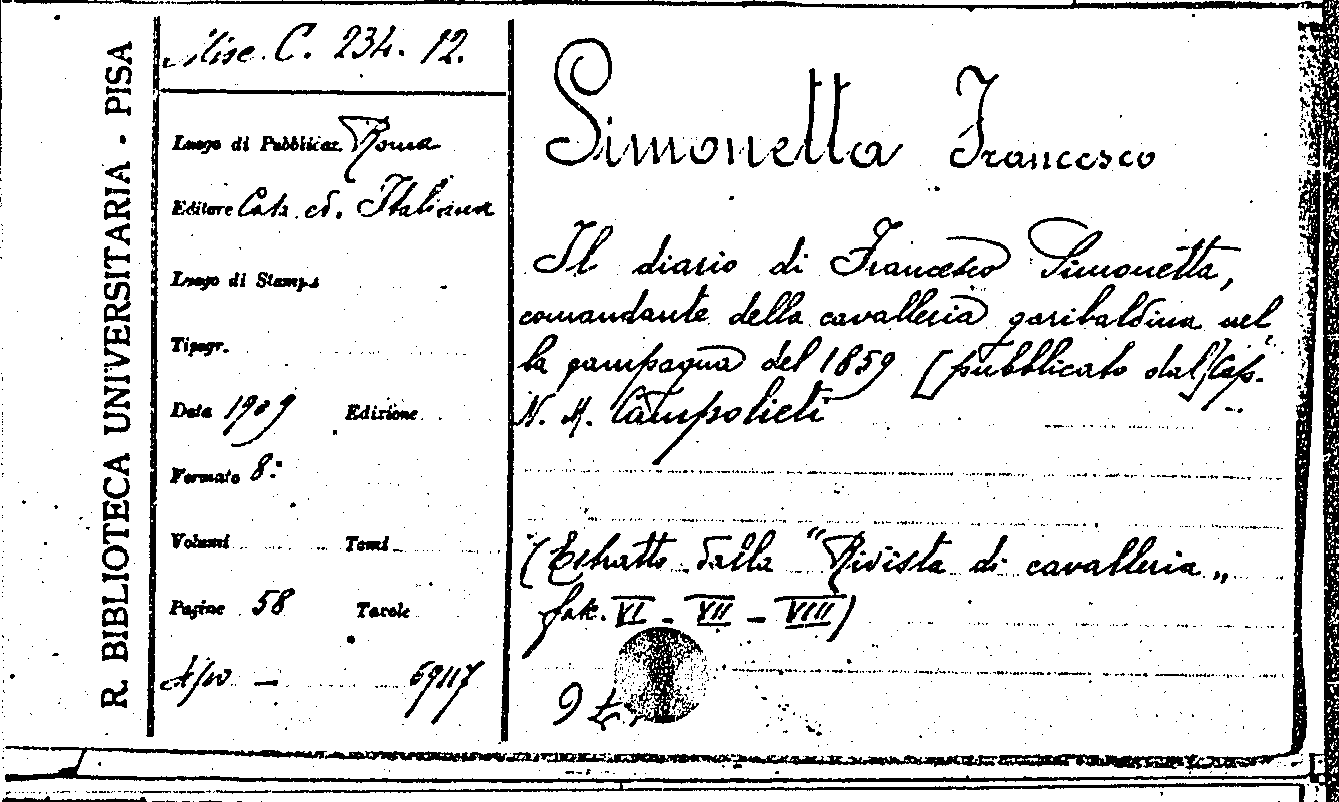 R. BIBLIOTECA UNIVERSITARIA - PISA
Misc. C. 234. 12.
Luogo di Pubblicaz. Roma
Editore Casa ed. Italiana
Luogo di Stampa
Tipogr.
Data 1909 Edizione
Formato 8º
Volumi Tomi
Pagine 58 Tavole
69117
Simonetta Francesco
Il diario di Francesco Simonetta,
comandante della cavalleria garibaldina nel
la campagna del 1859 (pubblicato dal Cap.
N. M. Campolieti
(Estratto dalla "Rivista di cavalleria„
fasc. VI - VII - VIII)